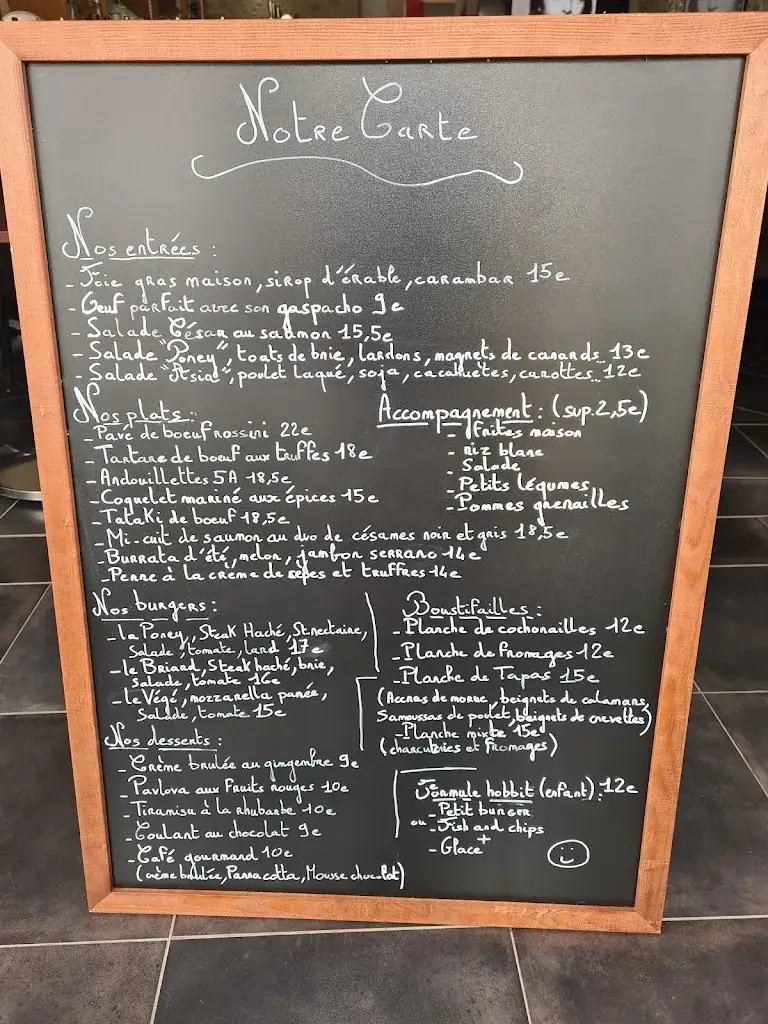 Notre Carte
Nos entrées :
- Foie gras maison, sirop d'érable, carambar 15e
- Oeuf parfait avec son gaspacho 9e
- Salade César au saumon 15,5e
- Salade "Poney", toats de brie, lardons, magrets de canards.. 13e
- Salade "Asia", poulet laqué, soja, cacahuètes, carottes.. 12e
Nos plats :
- Pavé de boeuf rossini 22e
- Tartare de boeuf aux truffes 18e
- Andouillettes 5A 18,5e
- Coquelet mariné aux épices 15e
- Tataki de boeuf 18,5e
- Mi-cuit de saumon au duo de césames noir et gris 18,5e
- Burrata d'été, melon, jambon serrano 14e
- Penne à la crème de cèpes et truffres 14e
Accompagnement : (sup. 2,5e)
- frites maison
- riz blanc
- Salade
- Petits légumes
- Pommes grenailles
Nos burgers :
- la Poney, Steak Haché, St.nectaire,
Salade, tomate, lard 17e
- le Briard, Steak haché, brie,
salade, tomate 16e
- le Végé, mozzarella panée,
Salade, tomate 15e
Boustifailles :
- Planche de cochonailles 12e
- Planche de fromages 12e
- Planche de Tapas 15e
(Accras de morue, beignets de calamars,
Samoussas de poulet, beignets de crevettes)
- Planche mixte 15e
(charcuteries et fromages)
Nos desserts :
- Crème brulée au gingembre 9e
- Pavlova aux fruits rouges 10e
- Tiramisu à la rhubarbe 10e
- Coulant au chocolat 9e
- Café gourmand 10e
(crème brulée, Panna cotta, Mousse chocolat)
Formule hobbit (enfant) : 12e
- Petit burger
ou - Fish and chips
+
- Glace